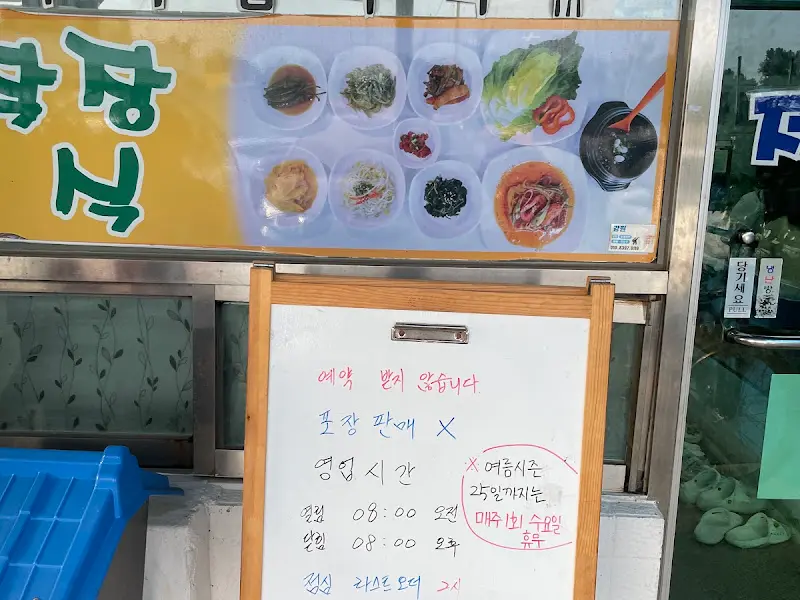 예약 받지 않습니다.
포장판매 X
영업시간
열림 08:00 오전
닫힘 08:00 오후
점심 라스트오더 2시
X 여름시즌
25일까지는
매주1회 수요일
휴무
당기세요
PULL
냉난방